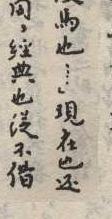 馬也……」現在也还
用，經典也從不借